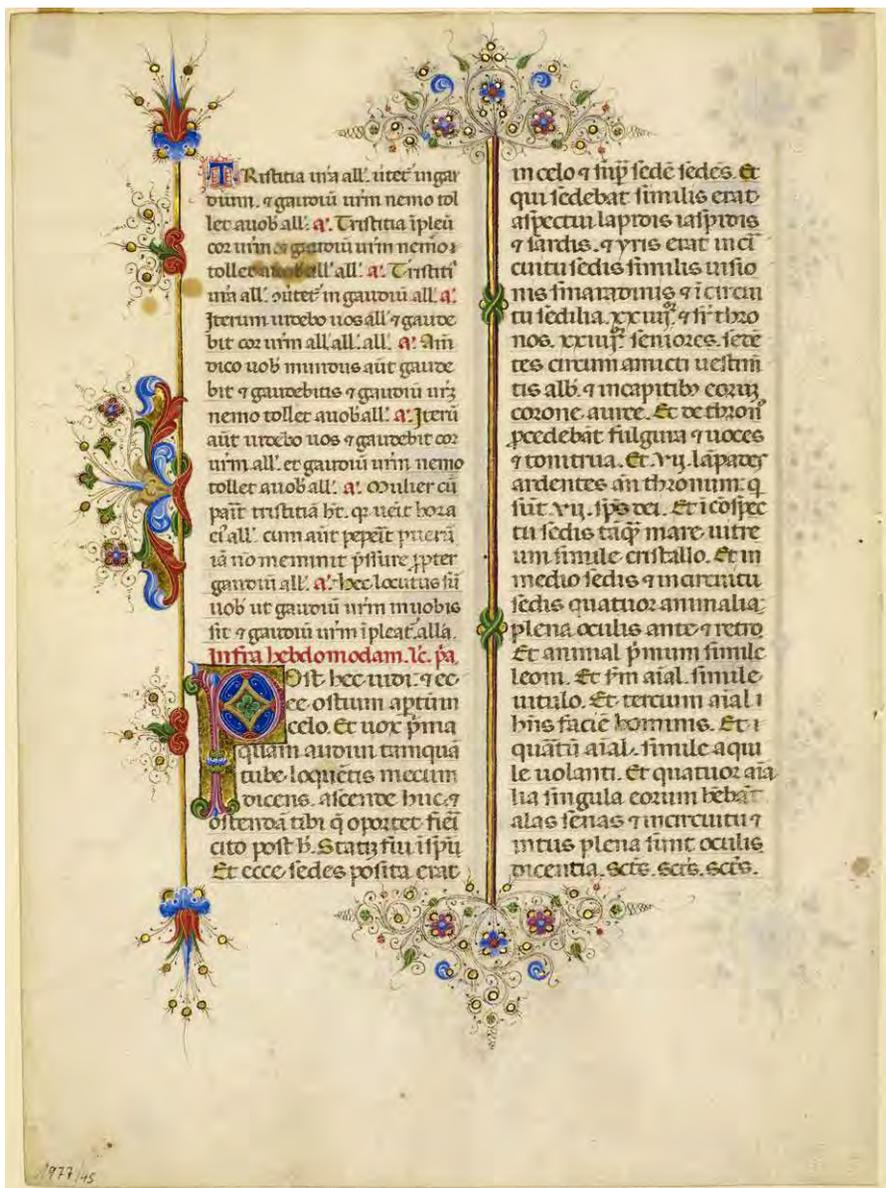 TRistitia ur̄a all'. ūtet̄ in gau
dium. ⁊ gaudiū ur̄m nemo tol
let auob̄ all'. a'. Tristitia īpleū
cor ur̄m ⁊ gaudiū ur̄m nemo
tollet auob̄ all' all'. a'. Tristiti
ur̄a all'. ɔ̄utet̄ in gaudiū all'. a'.
Iterum uidebo uos all' ⁊ gaude
bit cor ur̄m all' all'. all'. a'. Am̄
dico uob̄ mundus aūt gaude
bit ⁊ gaudebitis ⁊ gaudiū ur̄ꝫ
nemo tollet auob̄ all'. a'. Iterū
aūt uidebo uos ⁊ gaudebit cor
ur̄m all'. et gaudiū ur̄m nemo
tollet auob̄ all'. a'. Mulier cū
parit̄ tristitiā h̄t. qr ueīt hora
ei' all'. cum aūt pepeīt puerū
iā no meminit p̄ssure ꝓpter
gaudiū all'. a'. hec locutus sū
uob̄ ut gaudiū ur̄m in uobis
sit ⁊ gaudiū ur̄m īpleat̄ alla.
Infra hebdomodam. lc̄. pā.
POst hec uidi: ⁊ ec
ce ostium aptūm
celo. Et uox p̄ma
quam audiui tamquā
tube loquētis mecum
dicens. ascende huc ⁊
ostendā tibi q̄ oportet fieī
cito post h̄. Statiꝫ fui ī sp̄u
Et ecce sedes posita erat
in celo ⁊ sup̄ sedē sedēs. Et
qui sedebat similis erat
aspectui lapidis iaspidis
⁊ sardis. ⁊ yris erat in cī
cuitu sedis similis uisio
nis smaradinis ⁊ ī circui
tu sedilia. xxiiij. ⁊ sr̄ thro
nos. xxiiij. seniores. sedē
tes circum amicti uestim̄
tis alb̄. ⁊ in capitibꝫ eoruꝫ
corone auree. Et de thron̄
ꝓcedebāt fulgura ⁊ uoces
⁊ tonitrua. Et. vij. lāpades
ardentes an̄ thronum: q̄
sūt. vij. sp̄s dei. Et ī cōspec
tu sedis tāq̄ mare uitre
um simile cristallo. Et in
medio sedis ⁊ in circuitu
sedis quatuor animalia:
plena oculis ante ⁊ retro
Et animal p̄mum simile
leoni. Et sr̄m aīal. simile
uitulo. Et tercium aīal ī
hn̄s faciē hominis. Et ī
quātū aīal. simile aqui
le uolanti. Et quatuor aīa
lia singula eorum hēbāt
alas senas ⁊ in circuitu ⁊
intus plena sunt oculis
dicentia. Scr̄s. Scr̄s. Scr̄s.
1977/45